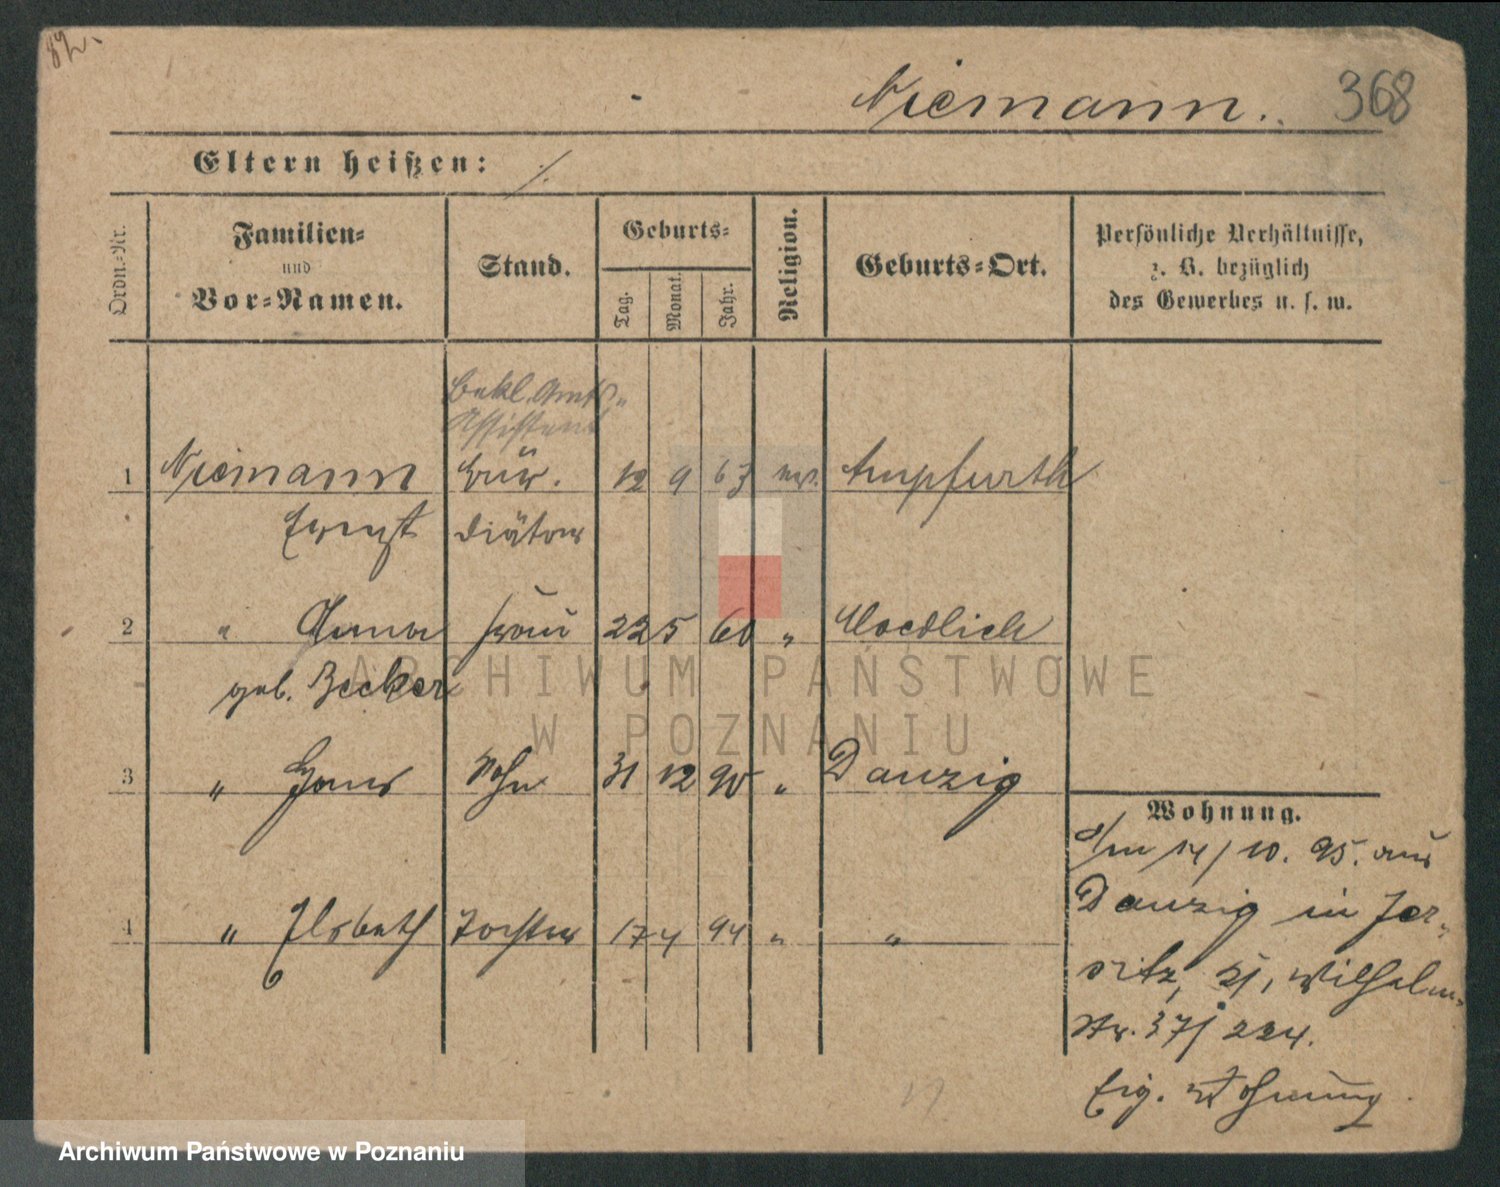 Niemann. 368
Eltern heißen: ./.
Ordn.-Nr.
Familien-
und
Vor-Namen.
Stand.
Geburts-
Tag.
Monat.
Jahr.
Religion.
Geburts-Ort.
Persönliche Verhältnisse,
z. B. bezüglich
des Gewerbes u. s. w.
Bekl. Amts-
Assistent
1 Niemann Bür. 12 9 63 ev. Ampfurth
Ernst Diätar
2 " Anna Frau 22 5 60 "
geb. Becker
3 " Hans Sohn 31 12 90 " Danzig
4 " Elsbeth Tochter 17 4 94 " "
Wohnung.
Am 14/10. 95. aus
Danzig in Jer-
sitz, Wilhelm-
Str. 37/224.
Eig. Wohnung
ARCHIWUM PAŃSTWOWE
W POZNANIU
Archiwum Państwowe w Poznaniu